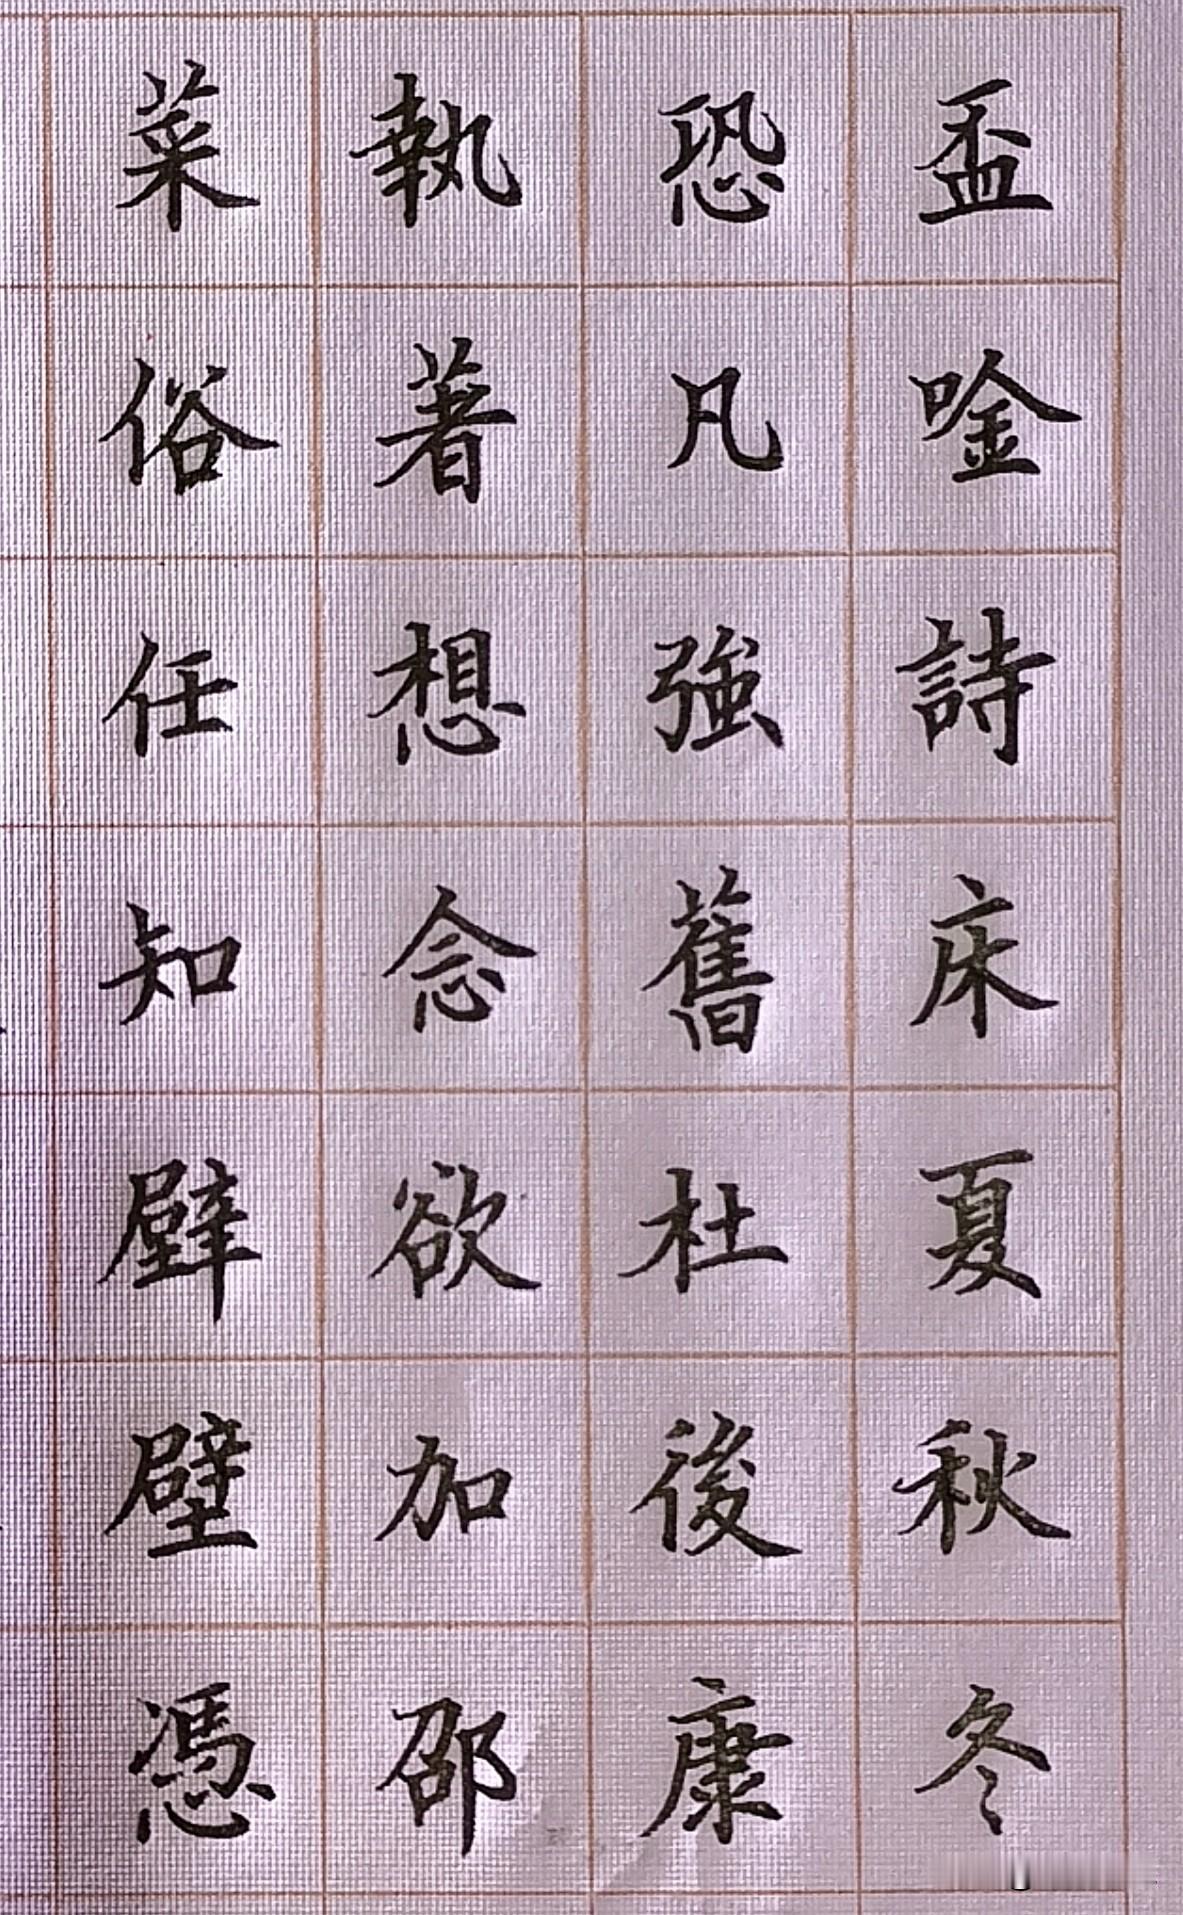 盃唫詩床夏秋冬
恐凡強舊杜後康
執著想念欲加邵
菜俗任知臂壁憑